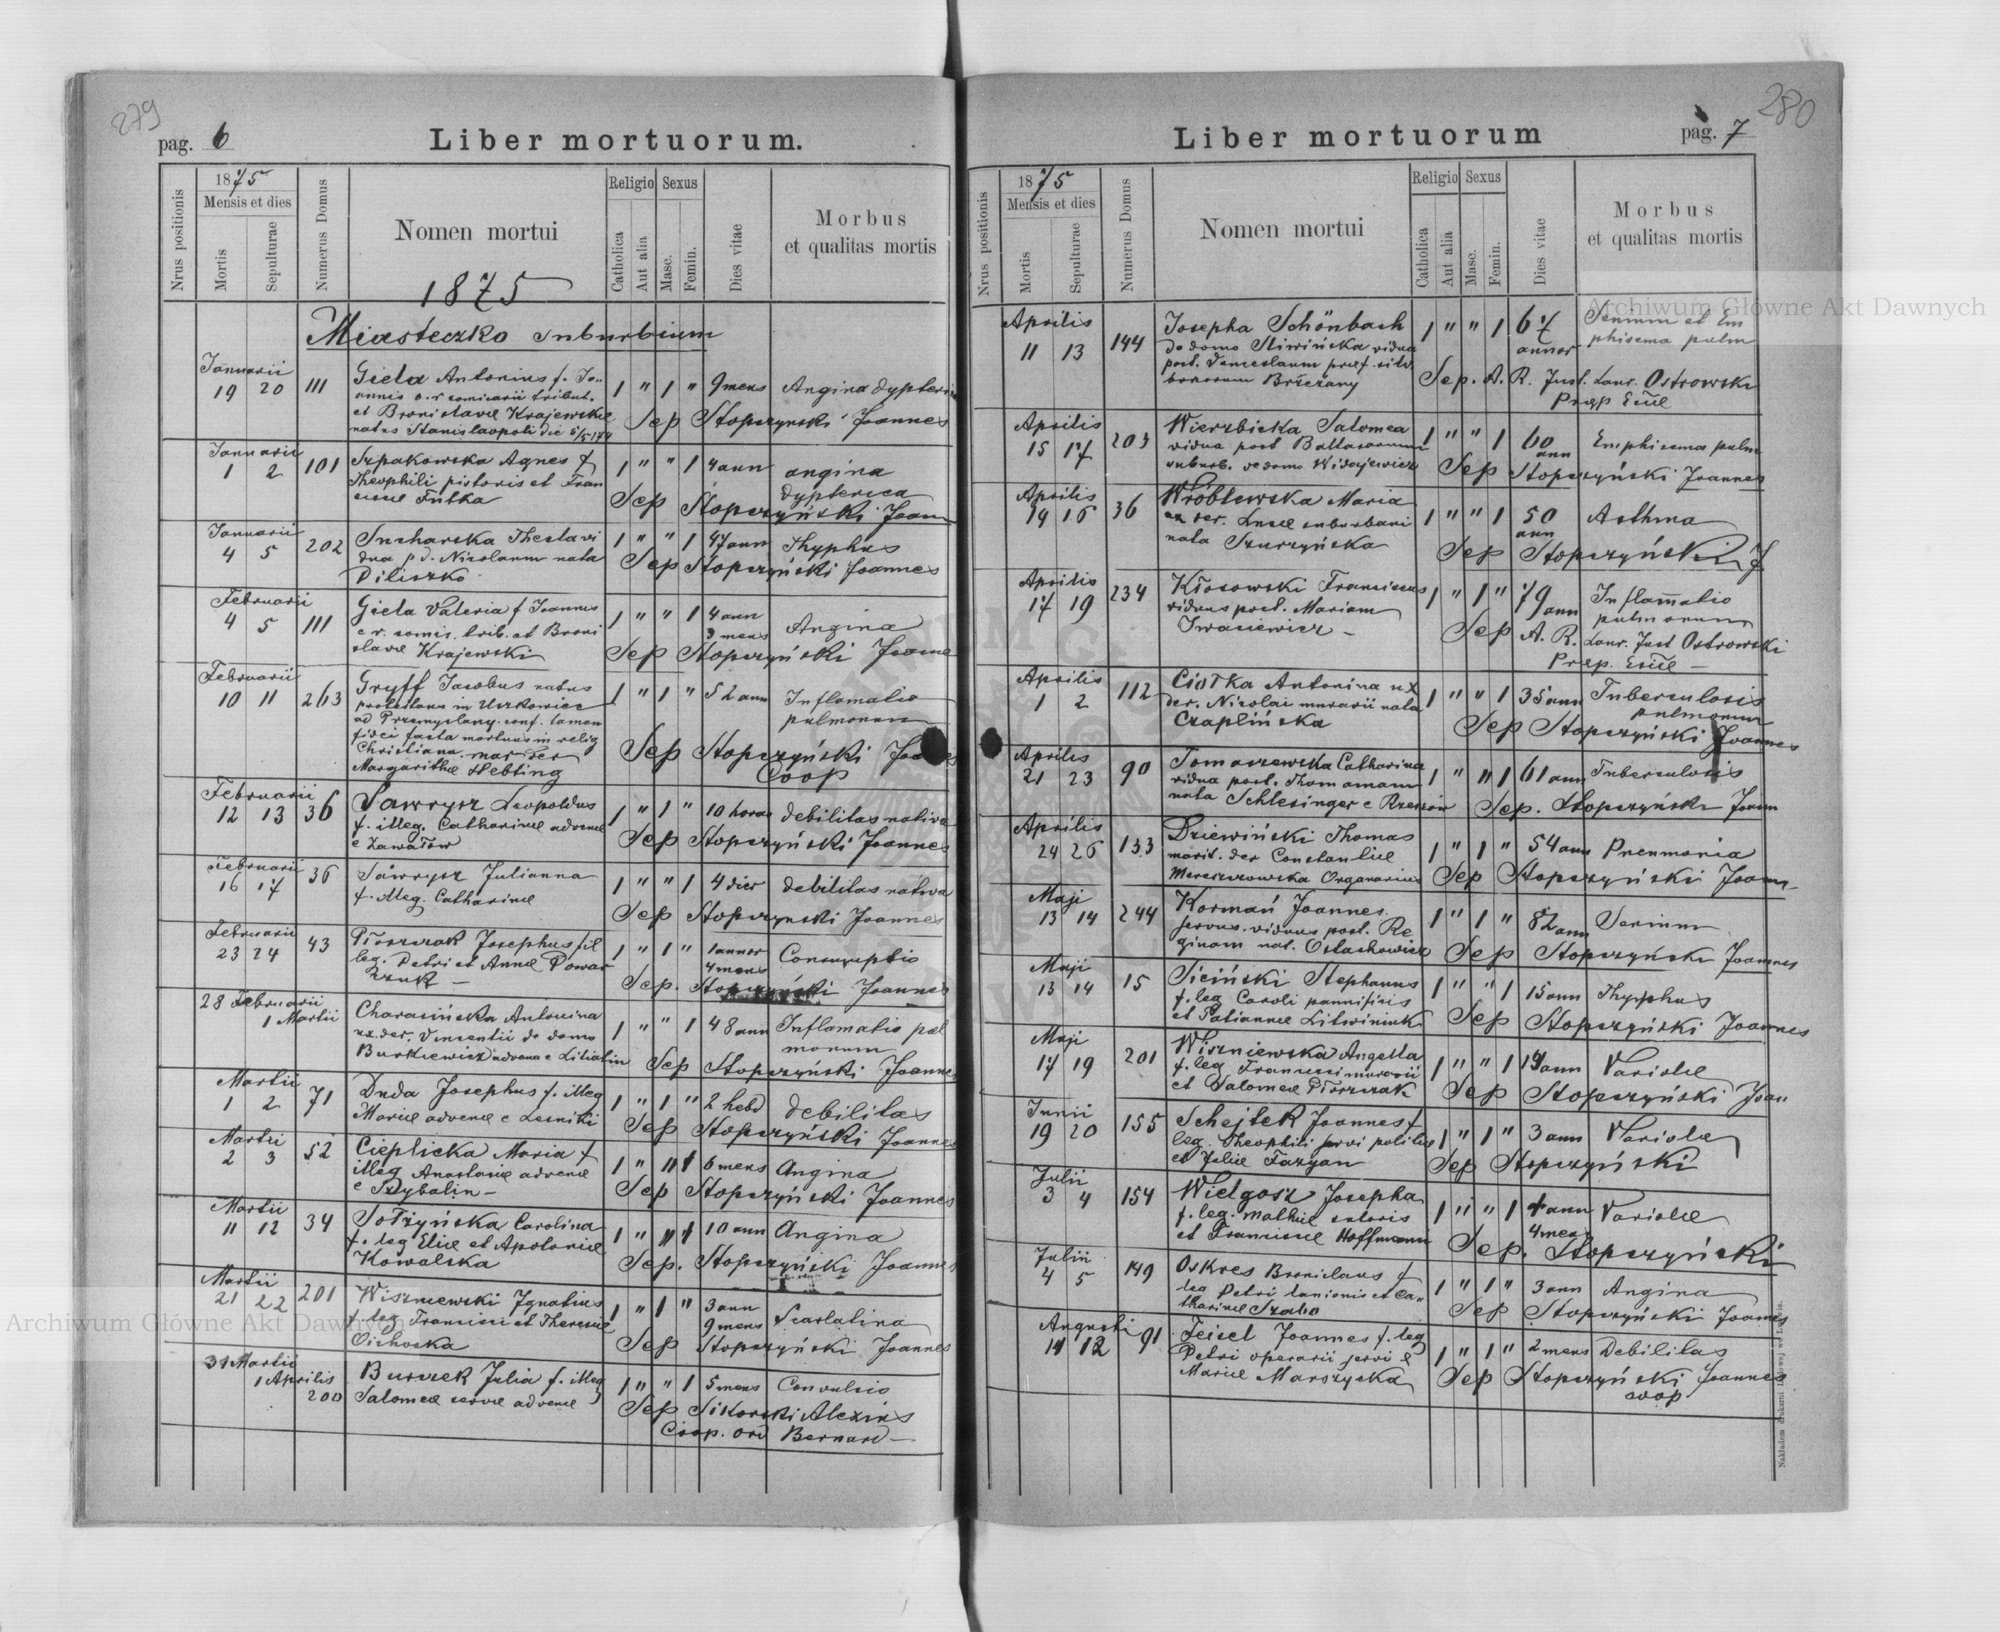 279
pag. 6
Liber mortuorum.
Nrus positionis
1875
Mensis et dies
Mortis
Sepulturae
Numerus Domus
Nomen mortui
Religio
Catholica
Aut alia
Sexus
Masc.
Femin.
Dies vitae
Morbus
et qualitas mortis
1875
Miasteczko suburbium
Januarii
19 20 111 Giela Antonius f. Jo- 1 " 1 " 9 mens Angina dypteri
annis
et Bronislavae Krajewski Sep Stopczynski Joannes
natus Stanislaopoli die
Januarii
1 2 101 Szpakowska Agnes f 1 " " 1 4 ann angina
Theophili pistoris et Fran dypterica
ciscae Futka Sep Stopczyński Joann
Januarii
4 5 202 Sucharska Thecla vi 1 " " 1 47 ann Thyphus
dua p d. Nicolaum nata Sep Stopczyński Joannes
Piliszko
Februarii
4 5 111 Giela Valeria f Joannis 1 " " 1 4 ann
3 mens Angina
c. r. comis. trib. et Broni
slavae Krajewski Sep Stopczyński Joanne
Februarii
10 11 263 Gryff Jacobus natus 1 " 1 " 52 ann Inflamatio
protestans in Uszkowice pulmonum
ad Przemyslany. conf. tamen
fidei facta mortuus in relig
Christiana. mar der Sep Stopczyński Joannes
Margarithae Hebting Coop
Februarii
12 13 36 Sawrysz Leopoldus 1 " 1 " 10 horas debilitas nativa
f. illeg. Catharinae advenae
e Zawałow Sep Stopczyński Joannes
Februarii
16 17 36 Sawrysz Julianna 1 " " 1 4 dies debilitas nativa
f. illeg. Catharinae Sep Stopczynski Joannes
Februarii
23 24 43 Płoszczak Josephus fil 1 " 1 " 1 annor
4 mens Consumptio
leg. Petri et Annae Powar
Sep. Stopczyński Joannes
28 Februarii
1 Martii Charasińska Antonina 1 " " 1 48 ann Inflamatio pul
ux. der. Vincentii de domo monum
Burkiewicz advena e Litiatin Sep Stopczyński Joannes
Martii
1 2 71 Duda Josephus f. illeg 1 " 1 " 2 hebd debilitas
Mariae advenae e Lesniki Sep Stopczyński Joannes
Martii
2 3 52 Cieplicka Maria f 1 " " 1 6 mens Angina
illeg Anastasiae advenae
e Rybalin Sep Stopczyński Joannes
Martii
11 12 34 Sołżyńska Carolina 1 " " 1 10 ann Angina
f. leg Eliae et Apoloniae
Kowalska Sep. Stopczyński Joannes
Martii
21 22 201 Wiszniewski Ignatius 1 " 1 " 3 ann
9 mens Scarlatina
f. leg Francisci et Theresiae
Cichocka Sep Stopczyński Joannes
31 Martii
1 Aprilis
200 Burczek Julia f. illeg 1 " " 1 5 mens Convulsio
Salomeae servae advenae Sep Sikorski Alexius
Coop. Ord Bernard
280
pag. 7
Liber mortuorum
Nrus positionis
1875
Mensis et dies
Mortis
Sepulturae
Numerus Domus
Nomen mortui
Religio
Catholica
Aut alia
Sexus
Masc.
Femin.
Dies vitae
Morbus
et qualitas mortis
Aprilis
11 13 144 Josepha Schönbach 1 " " 1 67
annor Senium et Em
phisema pulm
de domo Sliwińska vidua
post. Venceslaum praef. silv.
Brzeżany Sep. A. R. Just. Laur. Ostrowski
Praep Eccl
Aprilis
15 17 203 Wierzbicka Salomea 1 " " 1 60
ann Emphisema pulm
vidua post Baltasarum
suburb. de domo Widajewicz Sep Stopczyński Joannes
Aprilis
14 16 36 Wróblewska Maria 1 " " 1 50
ann Asthma
ux der. Lucae suburbani
nata Szurzyńska Sep Stopczyński J
Aprilis
17 19 234 Kłosowski Franciscus 1 " 1 " 79
ann Inflam̅atio
pulmonum
viduus post. Mariam
Iwasiewicz Sep A. R. Laur. Just Ostrowski
Praep. Eccl
Aprilis
1 2 112 Ciołka Antonina ux 1 " " 1 35 ann Tuberculosis
pulmonum
der. Nicolai murarii nata
Czaplińska Sep Stopczyński Joannes
Aprilis
21 23 90 Tomaszewska Catharina 1 " " 1 61 ann Tuberculosis
vidua post. Thomamam
nata Schlesinger e Rzeszów Sep. Stopczyński Joann
Aprilis
24 26 133 Dziewiński Thomas 1 " 1 " 54 ann Pneumonia
marit. der Constantiae
Mereszowska Organarius Sep Stopczyński Joann
Maji
13 14 244 Kormań Joannes 1 " 1 " 82 ann Senium
servus. viduus post. Re
ginam nat. Ostachowicz Sep Stopczyński Joannes
Maji
13 14 15 Siciński Stephanus 1 " " 1 15 ann Thyphus
f. leg Caroli pannificis
et Tatiannae Litwiniuk Sep Stopczyński Joannes
Maji
17 19 201 Wiszniewska Angella 1 " " 1 ann Variolae
f. leg Francisci murarii
et Salomeae Płoszczak Sep Stopczyński Joan
Junii
19 20 155 Schejtek Joannes f 1 " 1 " 3 ann Variolae
leg. Theophili servi politic
et Juliae Fazyan Sep Stopczyński
Julii
3 4 154 Wielgosz Josepha 1 " " 1 4 ann
4 mens Variolae
f. leg. Mathiae sutoris
et Franciscae Hoffmann Sep. Stopczyński
Julii
4 5 149 Oskres Bronislaus f 1 " 1 " 3 ann Angina
leg Petri lanionis et Ca-
tharinae Szabo Sep Stopczyński Joannes
Augusti
11 12 91 Feisel Joannes f. leg 1 " 1 " 2 mens Debilitas
Petri operarii
Mariae Marszycka Sep Stopczyński Joannes
coop
Archiwum Główne Akt Dawnych
Archiwum Główne Akt Dawnych